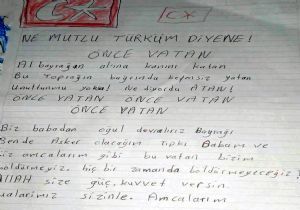 NE MUTLU TÜRKÜM DİYENE!
ÖNCE VATAN
Al bayrağın altına kanını katan
Bu Toprağın bağrında kefensiz yatan
Unuttunmu yoksa! Ne diyordu ATAN!
ÖNCE VATAN ÖNCE VATAN
ÖNCE VATAN
Biz babadan oğul devralırız Bayrağı
Bende Asker olacağım tıpkı Babam ve
siz amcalarım gibi bu vatan bizim
böldürmeyiz. hiç bir zamanda böldürmeyeceğiz!
ALLAH size güç, kuvvet versin.
Dualarımız sizinle. Amcalarım